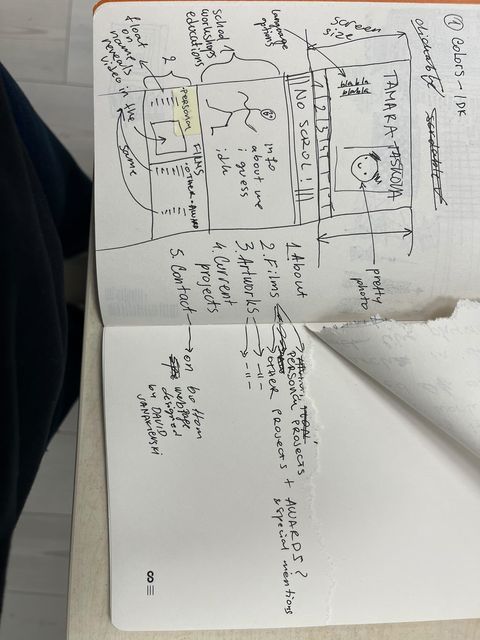 ① COLORS - IDK
clickable
scrollable
TAMARA TASKOVA
blabla
blabla
screen size
pretty photo
1 2 3 4
NO SCROL!
language options
info
about me
i guess
idk
school
workshops
educations
1
FILMS
• PERSONAL • OTHER • AWARD
2
float
on
name
reveals
video in the
same
1. About
2. Films
3. Artworks
4. Current
projects
5. Contact
PERSONAL PROJECTS
OTHER PROJECTS + AWARDS?
& special mentions
-||-
-||-
on bottom
webpage
designed
by DAVID
8